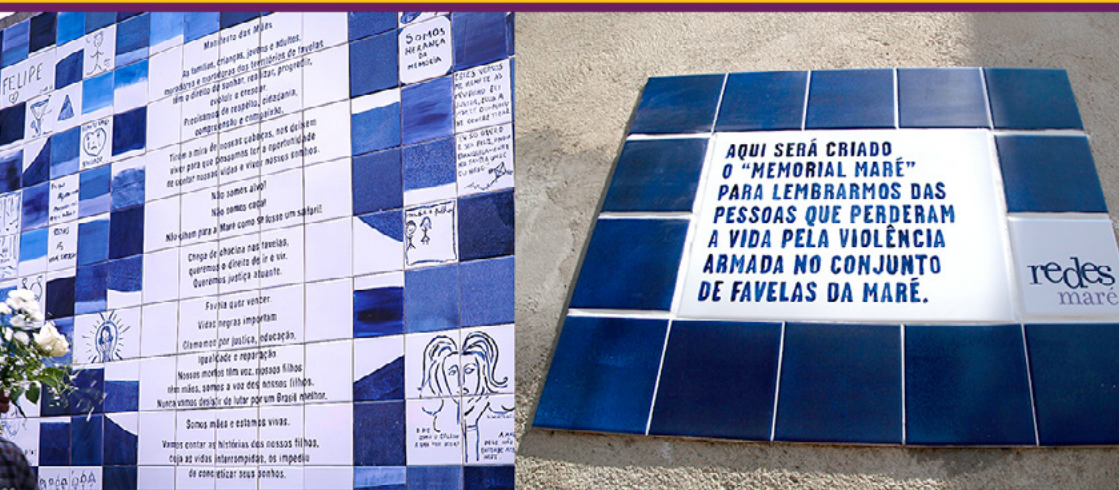 Manifesto das Mães
As famílias, crianças, jovens e adultos,
moradores e moradoras dos territórios de favelas
têm o direito de sonhar, realizar, progredir,
evoluir e crescer.
Precisamos de respeito, cidadania,
compreensão e compaixão.
Tirem a mira de nossas cabeças, nos deixem
viver para que possamos ter a oportunidade
de contar nossas vidas e viver nossos sonhos.
Não somos alvo!
Não somos caça!
Não olhem para a Maré como se fosse um safari!
Chega de chacina nas favelas,
queremos o direito de ir e vir.
Queremos justiça atuante.
Favela quer vencer.
Vidas negras importam
Clamamos por justiça, educação,
igualdade e reparação
Nossos mortos têm voz, nossos filhos
têm mães, somos a voz dos nossos filhos.
Nunca vamos desistir de lutar por um Brasil melhor.
Somos mães e estamos vivas.
Vamos contar as histórias dos nossos filhos,
cuja as vidas interrompidas, os impediu
de concretizar seus sonhos.
FELIPE
SOMOS
HERANÇA
DA
MEMÓRIA
AQUI SERÁ CRIADO
O “MEMORIAL MARÉ”
PARA LEMBRARMOS DAS
PESSOAS QUE PERDERAM
A VIDA PELA VIOLÊNCIA
ARMADA NO CONJUNTO
DE FAVELAS DA MARÉ.
redes
maré